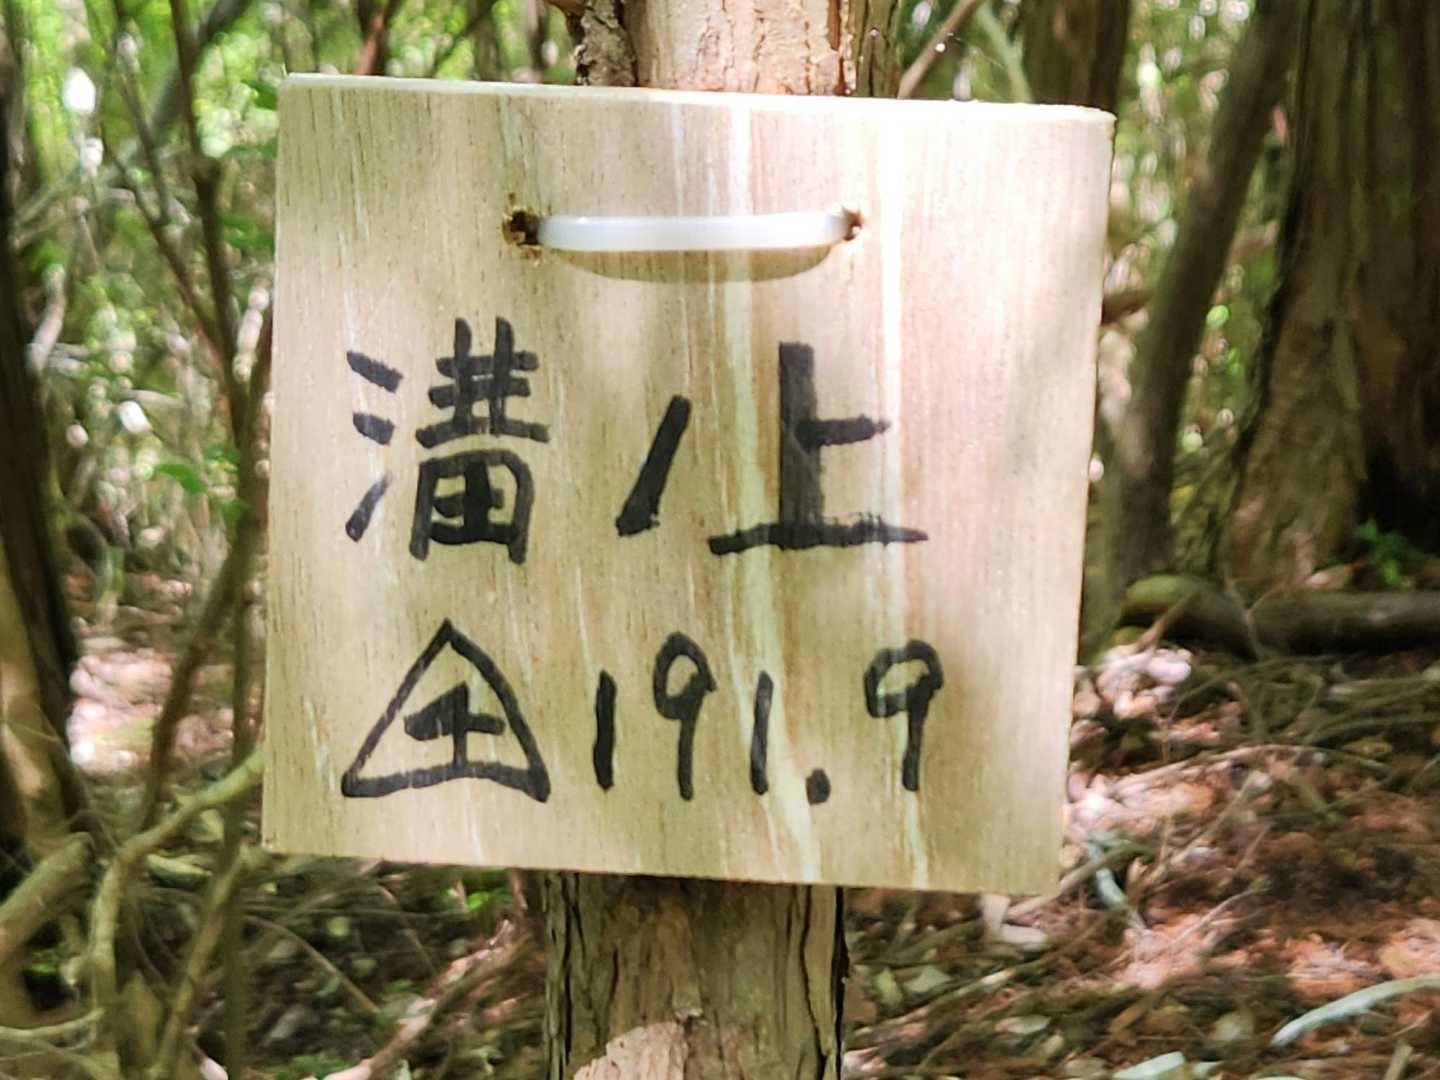 溝ノ上
△191.9